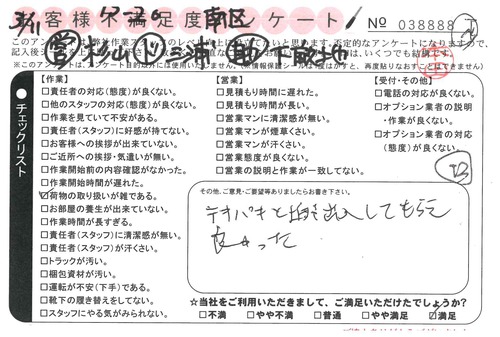 お客様不満足度アンケート！ № 038888
3/11 南区
【作業】
□責任者の対応(態度)が良くない。
□他のスタッフの対応(態度)が良くない。
□作業を見ていて不安がある。
□責任者(スタッフ)に好感が持てない。
□お客様への挨拶が出来ていない。
□ご近所への挨拶・気遣いが無い。
□作業開始前の内容確認がなかった。
□作業開始時間が遅れた。
□荷物の取り扱いが雑である。
□お部屋の養生が出来ていない。
□作業時間が長すぎる。
□責任者(スタッフ)に清潔感が無い。
□責任者(スタッフ)が汗くさい。
□トラックが汚い。
□梱包資材が汚い。
□運転が不安(下手)である。
□靴下の履き替えをしてない。
□スタッフにやる気がみられない。
【営業】
□見積もり時間に遅れた。
□見積もり時間が長い。
□営業マンに清潔感が無い。
□営業マンが煙草くさい。
□営業マンが汗くさい。
□営業態度が良くない。
□営業の説明と作業が一致してない。
【受付・その他】
□電話の対応が良くない。
□オプション業者の説明
・作業が良くない。
□オプション業者の対応
(態度)が良くない。
チェックリスト
その他、ご意見・ご要望等ありましたらお書き下さい。
テキパキと搬出入してもらえて
良かった
☆当社をご利用いただきまして、ご満足いただけたでしょうか？
□不満 □やや不満 □普通 □やや満足 ☑満足